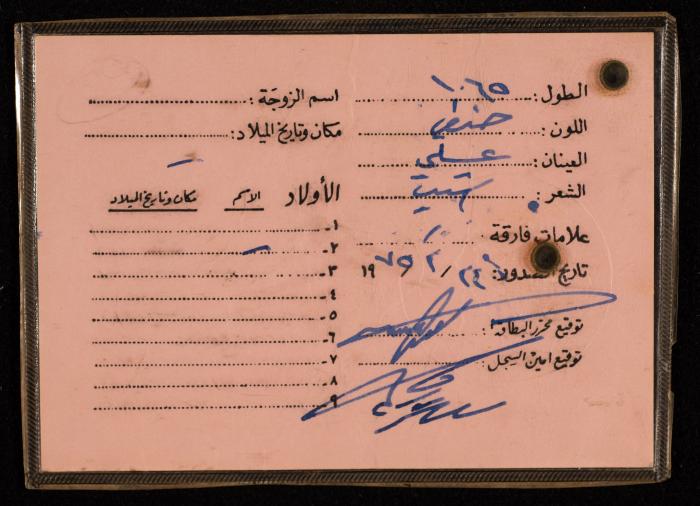 الطول: ١.٦٥
اللون: حنطي
العينان: عسلي
الشعر:
علامات فارقة
تاريخ الصدور: ٢٤ / ٢ / ١٩٧٥
توقيع محرر البطاقة:
توقيع امين السجل:
اسم الزوجة:
مكان وتاريخ الميلاد: –
الأولاد الاسم مكان وتاريخ الميلاد
١-
٢- –
٣-
٤-
٥-
٦-
٧-
٨-
٩-